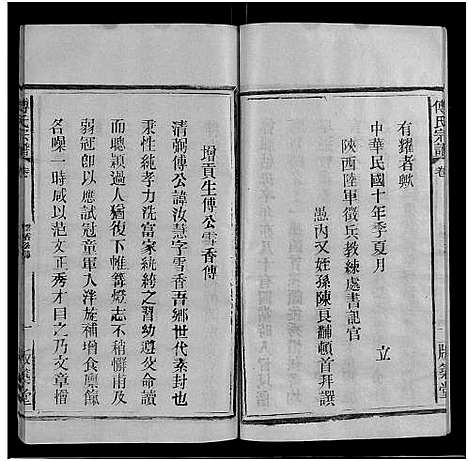 傅氏宗譜
卷
有耀者歟
中華民國十年季夏月
陝西陸軍徵兵教練處書記官
立
愚內又姪孫陳良黼頓首拜譔
版築堂
增貢生傅公雪香傳
清弼傅公諱汝慧字雪香吾鄉世代素封也
秉性純孝力洗富家紈絝之習幼遵父命讀
而聰穎過人猶復下帷篝燈志不稍懈甫及
弱冠即以應試冠童軍入泮旋補增食廩餼
名噪一時咸以范文正秀才目之乃文章揩
傅氏宗譜
卷
一
版築堂